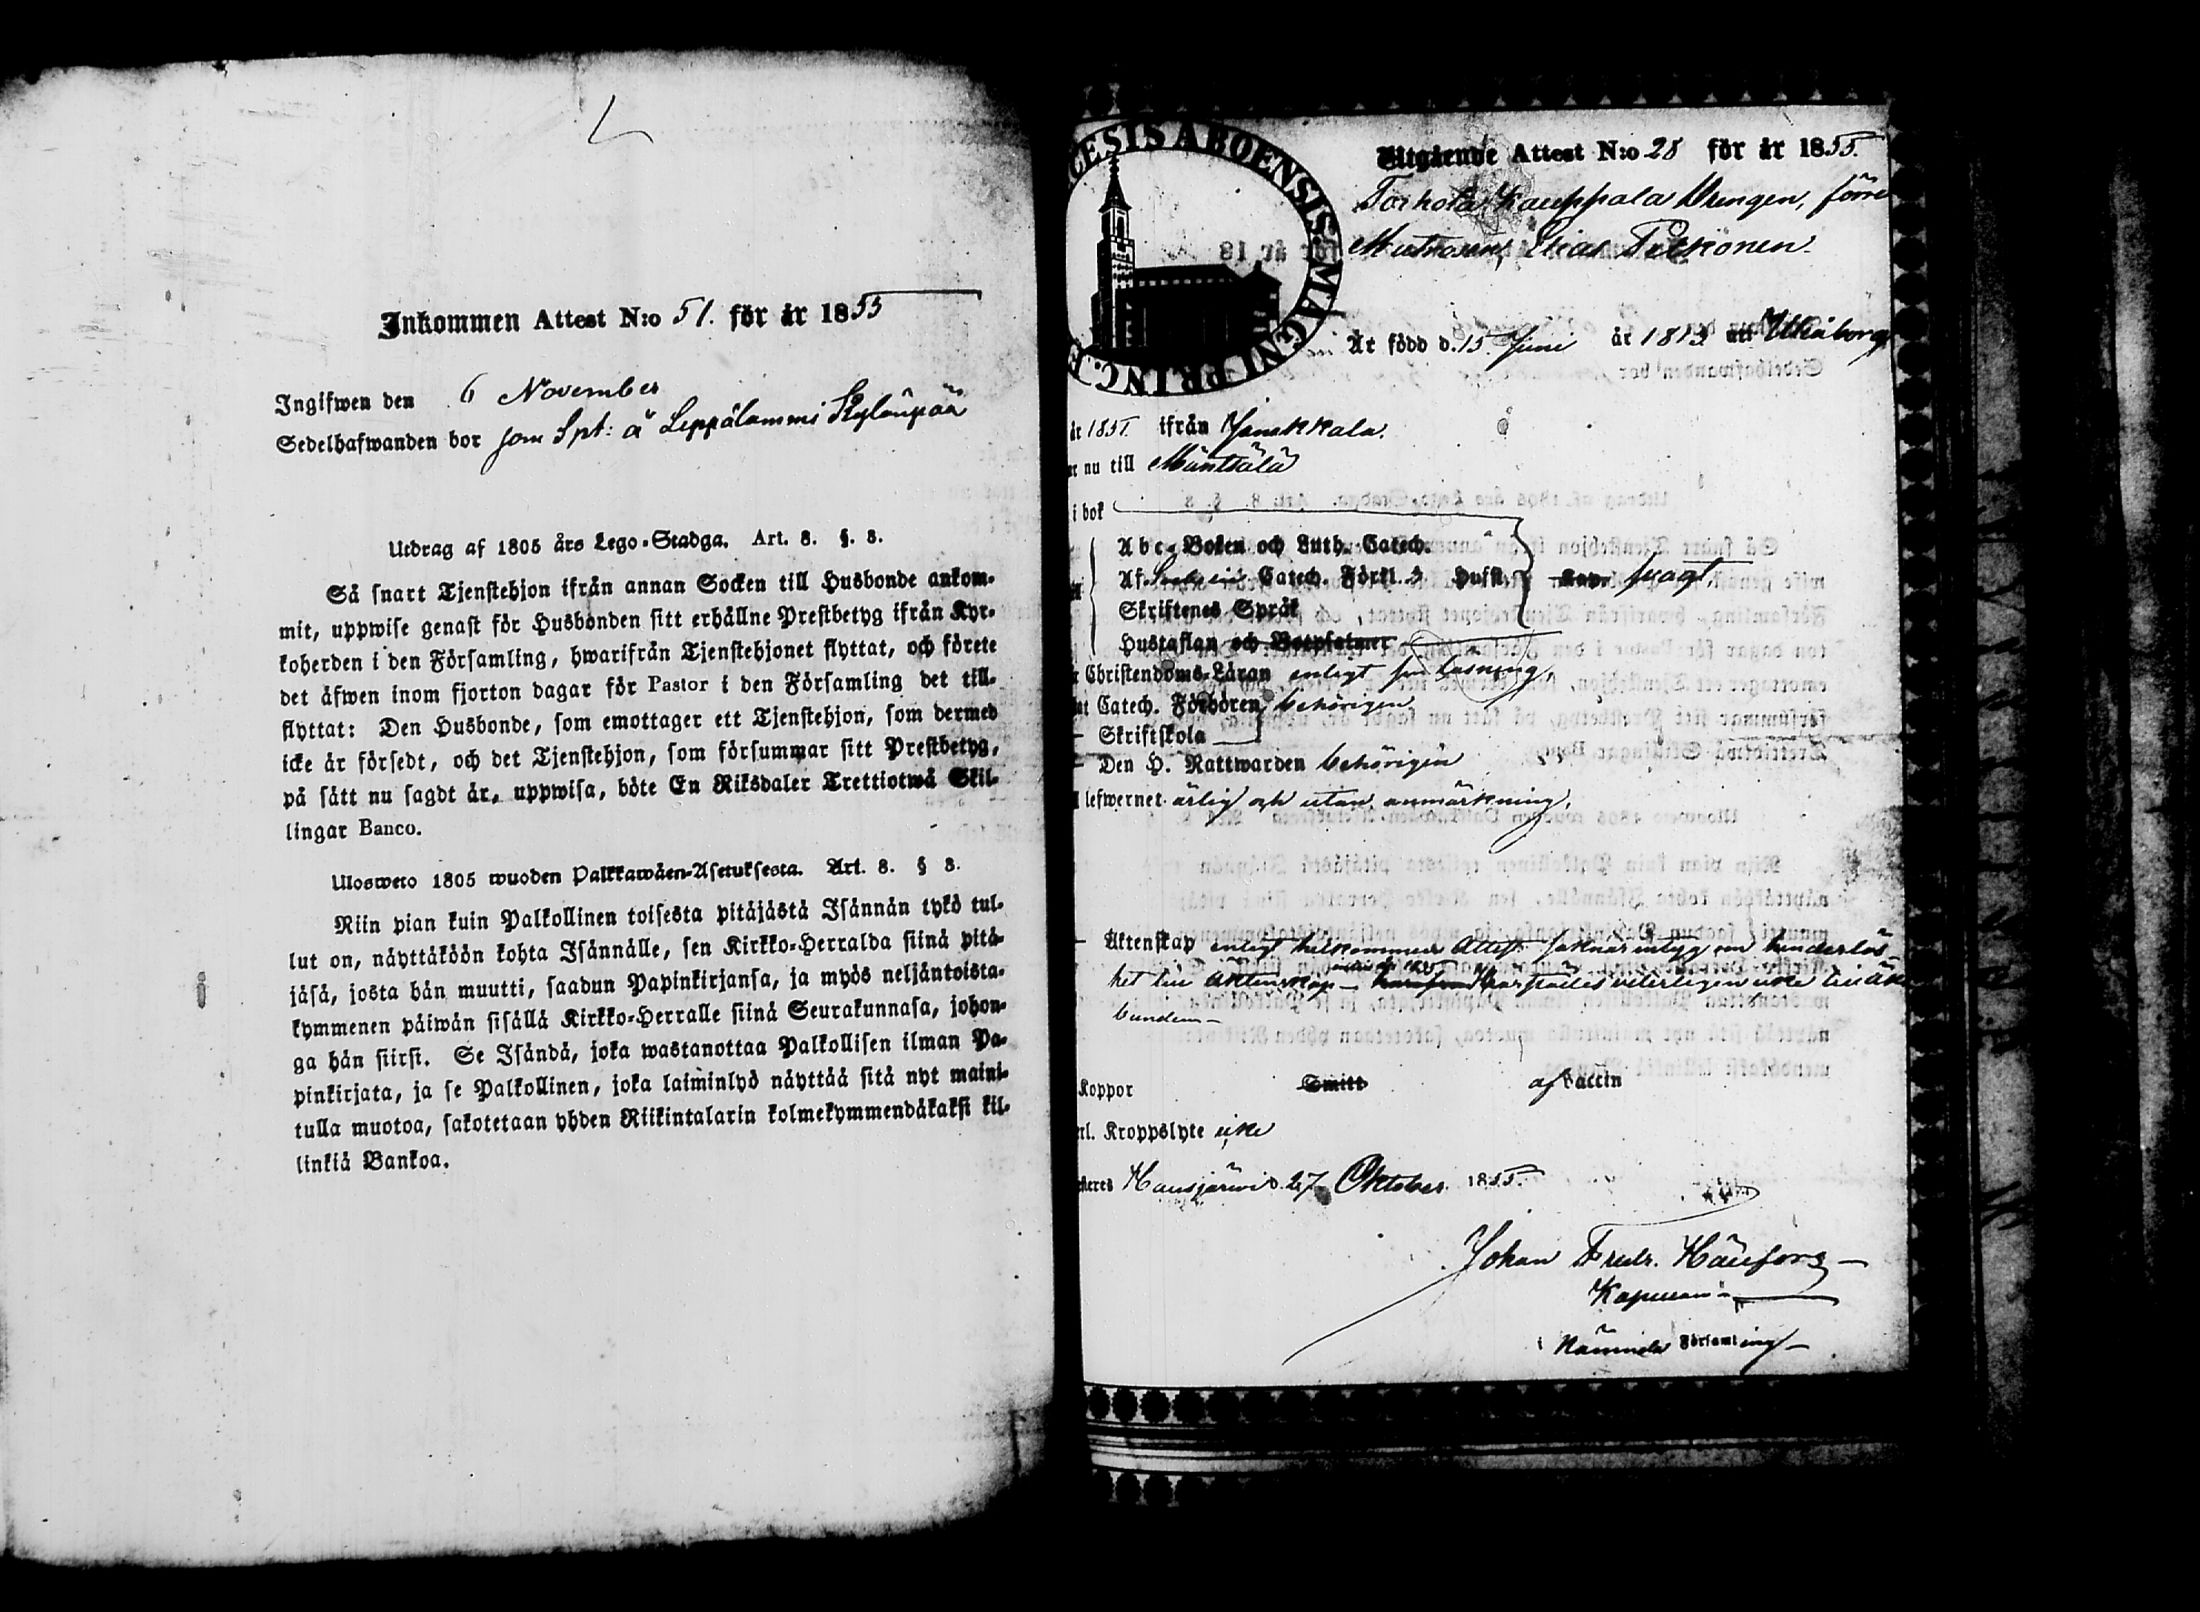 Inkommen Attest N:o 51. för år 1855
Ingifwen den 6 November
Sedelhafwanden bor som Spt: å Leppälammi Kylänpää
Utdrag af 1805 års Lego-Stadga. Art. 8. §. 8.
Så snart Tjenstehjon ifrån annan Socken till Husbonde ankom-
mit, uppwise genast för Husbonden sitt erhållne Prestbetyg ifrån Kyr-
koherden i den Församling, hwarifrån Tjenstehjonet flyttat, och förete
det äfwen inom fjorton dagar för Pastor i den Församling det till-
flyttat: Den Husbonde, som emottager ett Tjenstehjon, som dermed
icke är försedt, och det Tjenstehjon, som försummar sitt Prestbetyg,
på sätt nu sagdt är, uppwisa, böte En Riksdaler Trettiotwå Skil-
lingar Banco.
Ulosweto 1805 wuoden Palkkawäen-Asetuksesta. Art. 8. § 8.
Niin pian kuin Palkollinen toisesta pitäjästä Isännän tykö tul-
lut on, näyttäköön kohta Isännälle, sen Kirkko-Herralda siinä pitä-
jäsä, josta hän muutti, saadun Papinkirjansa, ja myös neljäntoista-
kymmenen päiwän sisällä Kirkko-Herralle siinä Seurakunnasa, johon-
ga hän siirsi. Se Isändä, joka wastanottaa Palkollisen ilman Pa-
pinkirjata, ja se Palkollinen, joka laiminlyö näyttää sitä nyt maini-
tulla muotoa, sakotetaan yhden Riikintalarin kolmekymmendäkaksi kil-
linkiä Bankoa.
CESIS ABOENSIS. MAGNI PRINC. F
Utgående Attest N:o 28 för år 1855.
Torhola Kauppala Drengen, förre
Matrosen, Elias Pelkonen.
Är född d. 15 Juni år 1813 Uleåborg
år 1851 ifrån Janakkala.
nu till Mäntsälä
i bok
Abc-Boken och Luth. Catech.
Af Catech. Förkl. Husfl. svagt
Skriftenes Språk
Hustaflan och Botpsalmer
Christendoms-Läran enligt sin läsning,
Catech. Förhören behörigen
Skriftskola
Den H. Nattwarden behörigen
lefwernet ärlig och utan anmärkning.
Äktenskap enligt hitkommen Attest saknar intyg om hinderlös-
het till äktenskap – har härstädes veterligen icke till äkt
bunden –
Koppor Smitt af Vaccin
Kroppslyte icke
Hausjärwi d. 27 Oktober 1855.
Johan Fredr.
Kapellan
i Församling